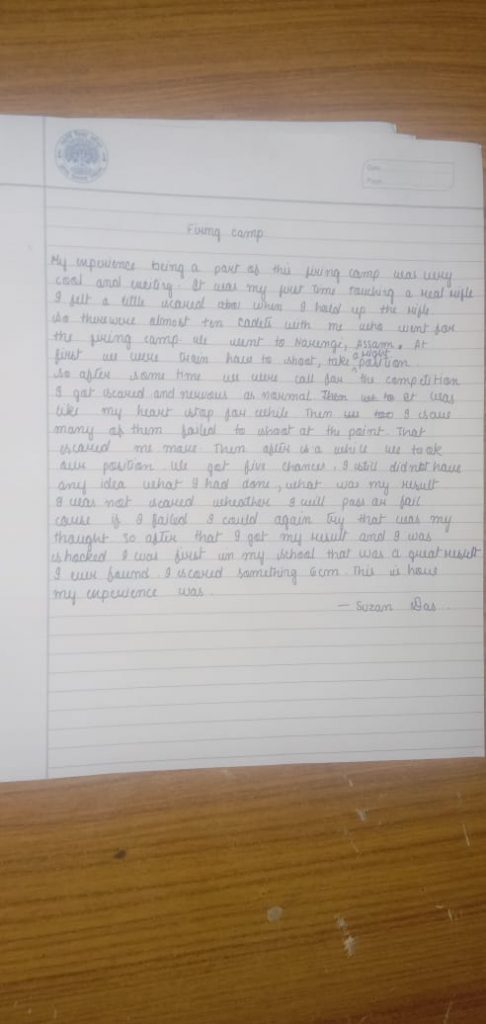 Date
Page
Firing camp
My experience being a part of this firing camp was very
cool and exciting. It was my first time touching a real rifle
I felt a little scared also when I hold up the rifle
So there were almost ten cadets with me who went for
the firing camp we went to Narenge, Assam. At
first we were train how to shoot, take a right position
So after some time we were call for the competition
I got scared and nervous as normal. Then we to it was
like my heart stop for while Then we too I saw
many of them failed to shoot at the point. That
scared me more. Then after is a while we took
our position. We got five chances, I still didnot have
any idea what I had done, what was my result
I was not scared wheather I will pass or fail
cause if I failed I could again try that was my
thought so after that I got my result and I was
shocked I was first in my school that was a great result
I ever found. I scored something 6cm. This is how
my experience was.
— Suzan Das.